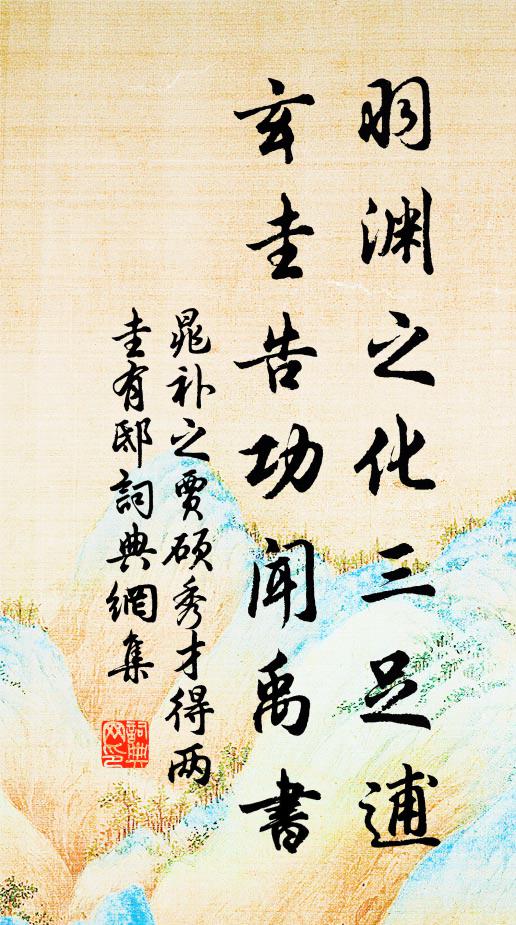 羽渊之化三足逋
玄圭告功闻禹書
晁补之贾硕秀才得两
圭有邸詞典網集
詞典